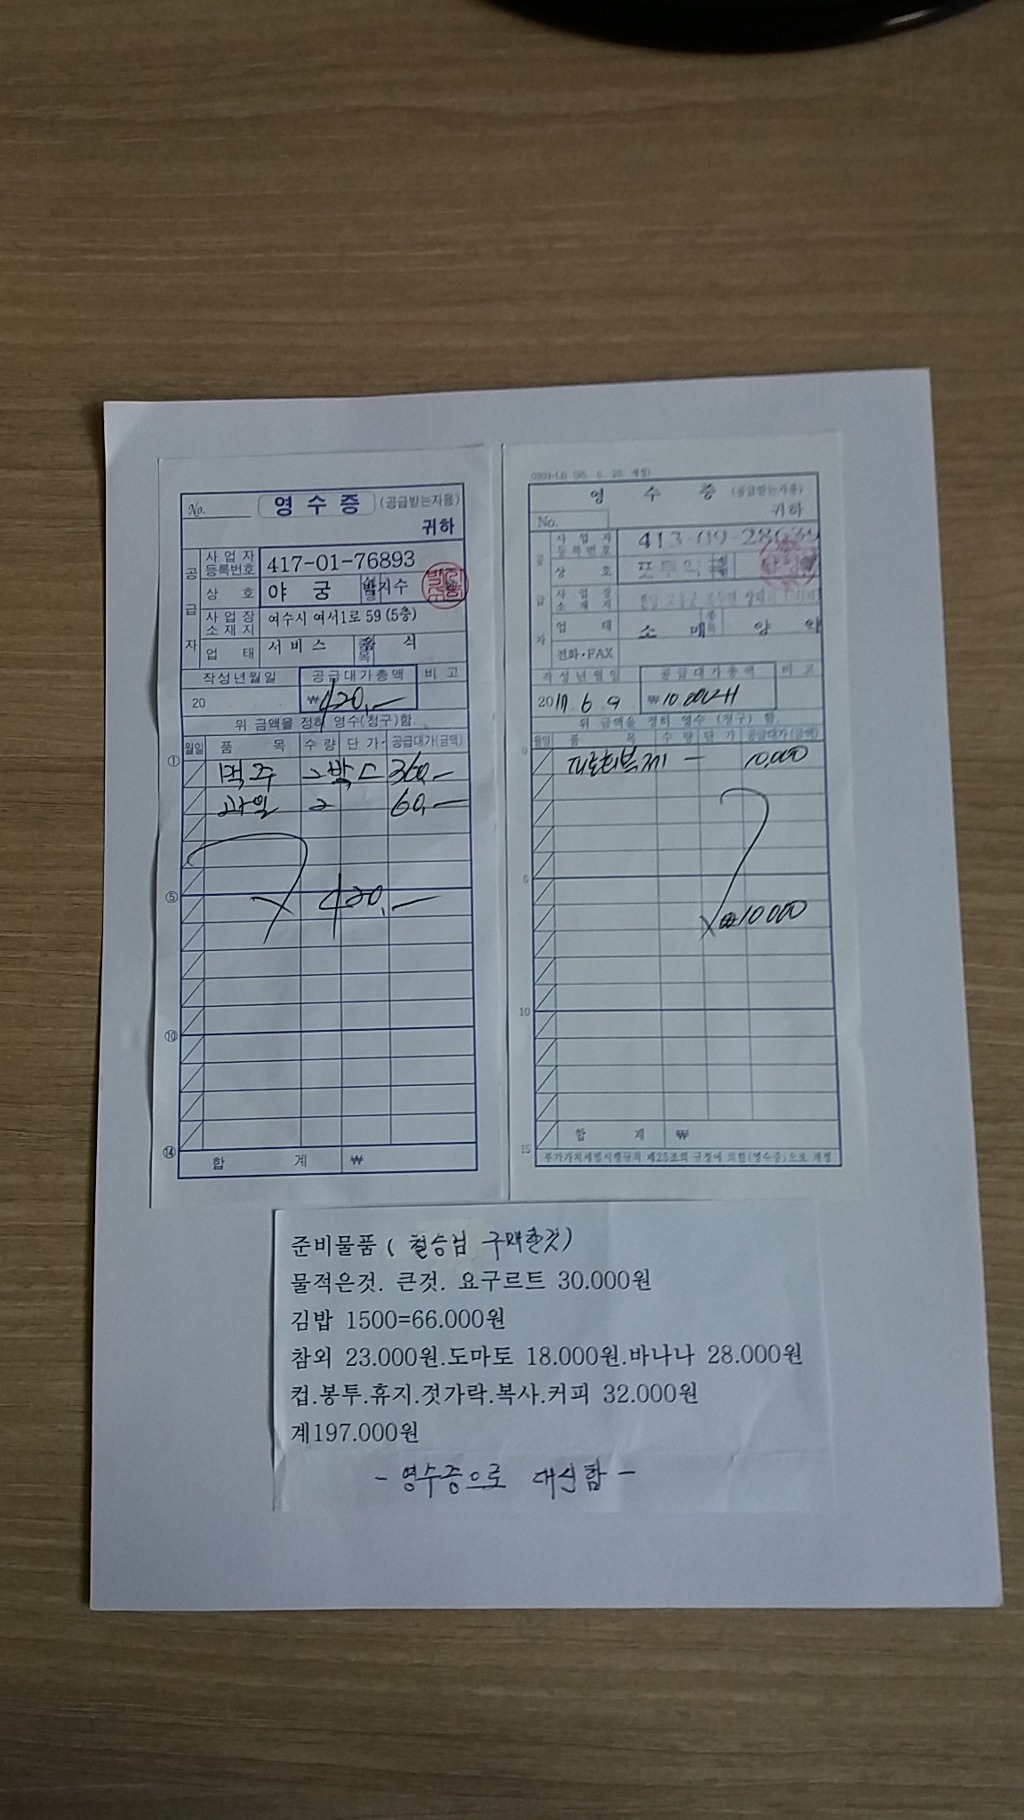 No. 영 수 증 (공급받는자용)
귀하
공급자
사업자등록번호 417-01-76893
상 호 야 궁 박지수
사업장소재지 여수시 여서1로 59 (5층)
업 태 서비스 종목 음 식
작성년월일 공급대가총액 비 고
20 . . ₩420,-
위 금액을 정히 영수(청구)함
월일 품 목 수 량 단 가 공급대가(금액)
① 맥주 2박스 360,-
과일 2 60,-
⑤ 420,-
⑩
⑭ 합 계 ₩
영 수 증 (공급받는자용)
No. 귀하
공급자
사업자등록번호 413-09-28639
상 호
사업장소재지
업 태 소 매 종목 양
전화·FAX
작성년월일 공급대가총액 비 고
2017. 6. 9. ₩10,000
위 금액을 정히 영수 (청구) 함.
월일 품 목 수 량 단 가 공급대가(금액)
피로회복제 - 10,000
5
10,000
10
합 계 ₩
15 부가가치세법시행규칙 제25조의 규정에 의한(영수증)으로 개정
준비물품 ( 철승님 구매한것)
물적은것. 큰것. 요구르트 30.000원
김밥 1500=66.000원
참외 23.000원.도마토 18.000원.바나나 28.000원
컵.봉투.휴지.젓가락.복사.커피 32.000원
계197.000원
- 영수증으로 대신함 -